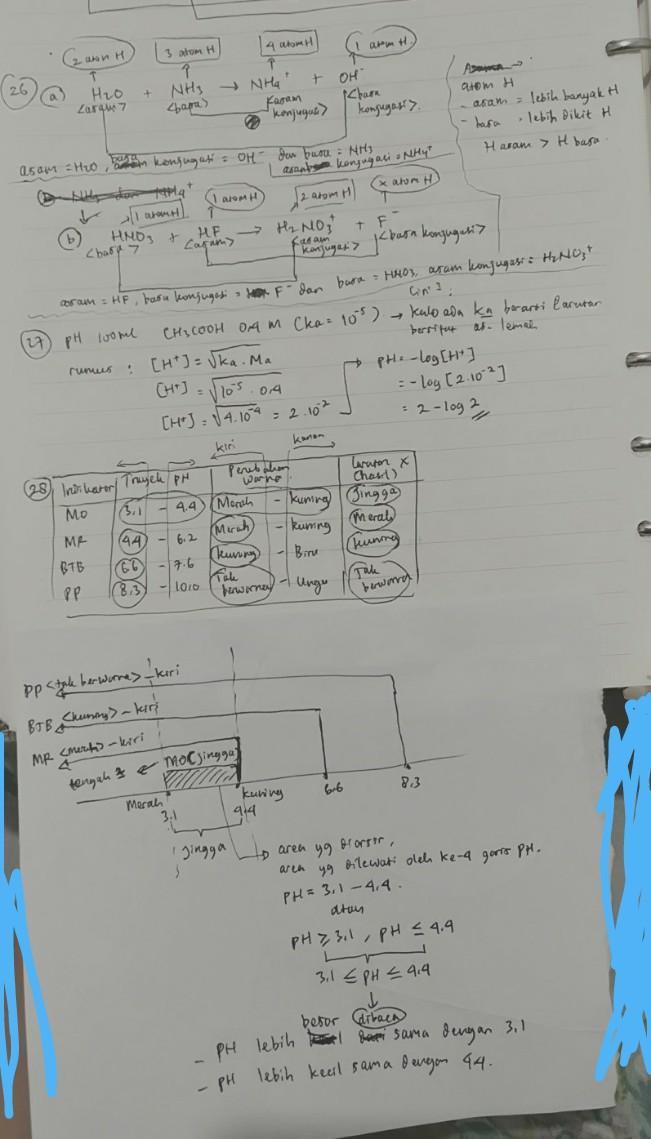 2 atom H   3 atom H   4 atom H   1 atom H
26 a) H2O + NH3 → NH4+ + OH-
<asam> <basa> <asam konjugasi> <basa konjugasi>
asam = H2O, basa konjugasi = OH- dan basa = NH3
asam konjugasi = NH4+
atom H
- asam = lebih banyak H
- basa = lebih dikit H
H asam > H basa
1 atom H   1 atom H   2 atom H   x atom H
b) HNO3 + HF → H2NO3+ + F-
<basa> <asam> <asam konjugasi> <basa konjugasi>
asam = HF, basa konjugasi = F- dan basa = HNO3, asam konjugasi = H2NO3+
27 pH 100 ml CH3COOH 0.4 M (Ka = 10-5) → kalo ada ka berarti larutan
bersifat as. lemah
rumus : [H+] = √Ka . Ma
[H+] = √10-5 . 0,4
[H+] = √4.10-4 = 2.10-2
pH = -log[H+]
= -log [2.10-2]
= 2 - log 2
kiri   kanan
28 Indikator Trayek pH Perubahan Warna Larutan X (hasil)
MO 3,1 - 4.4 Merah - kuning Jingga
MR 4.4 - 6.2 Merah - kuning Merah
BTB 6.6 - 7.6 kuning - Biru kuning
PP 8,3 - 10,0 Tak berwarna - Ungu Tak berwarna
PP <tak berwarna> - kiri
BTB <kuning> - kiri
MR <merah> - kiri
tengah 2 MO (jingga)
Merah 3,1 4,4 kuning 6.6 8.3
Jingga
area yg diarsir,
area yg dilewati oleh ke-4 garis pH.
pH = 3,1 - 4,4.
atau
pH ≥ 3,1 , pH ≤ 4.4
3.1 ≤ pH ≤ 4.4
dibaca
- pH lebih besar sama dengan 3,1
- pH lebih kecil sama dengan 4.4.